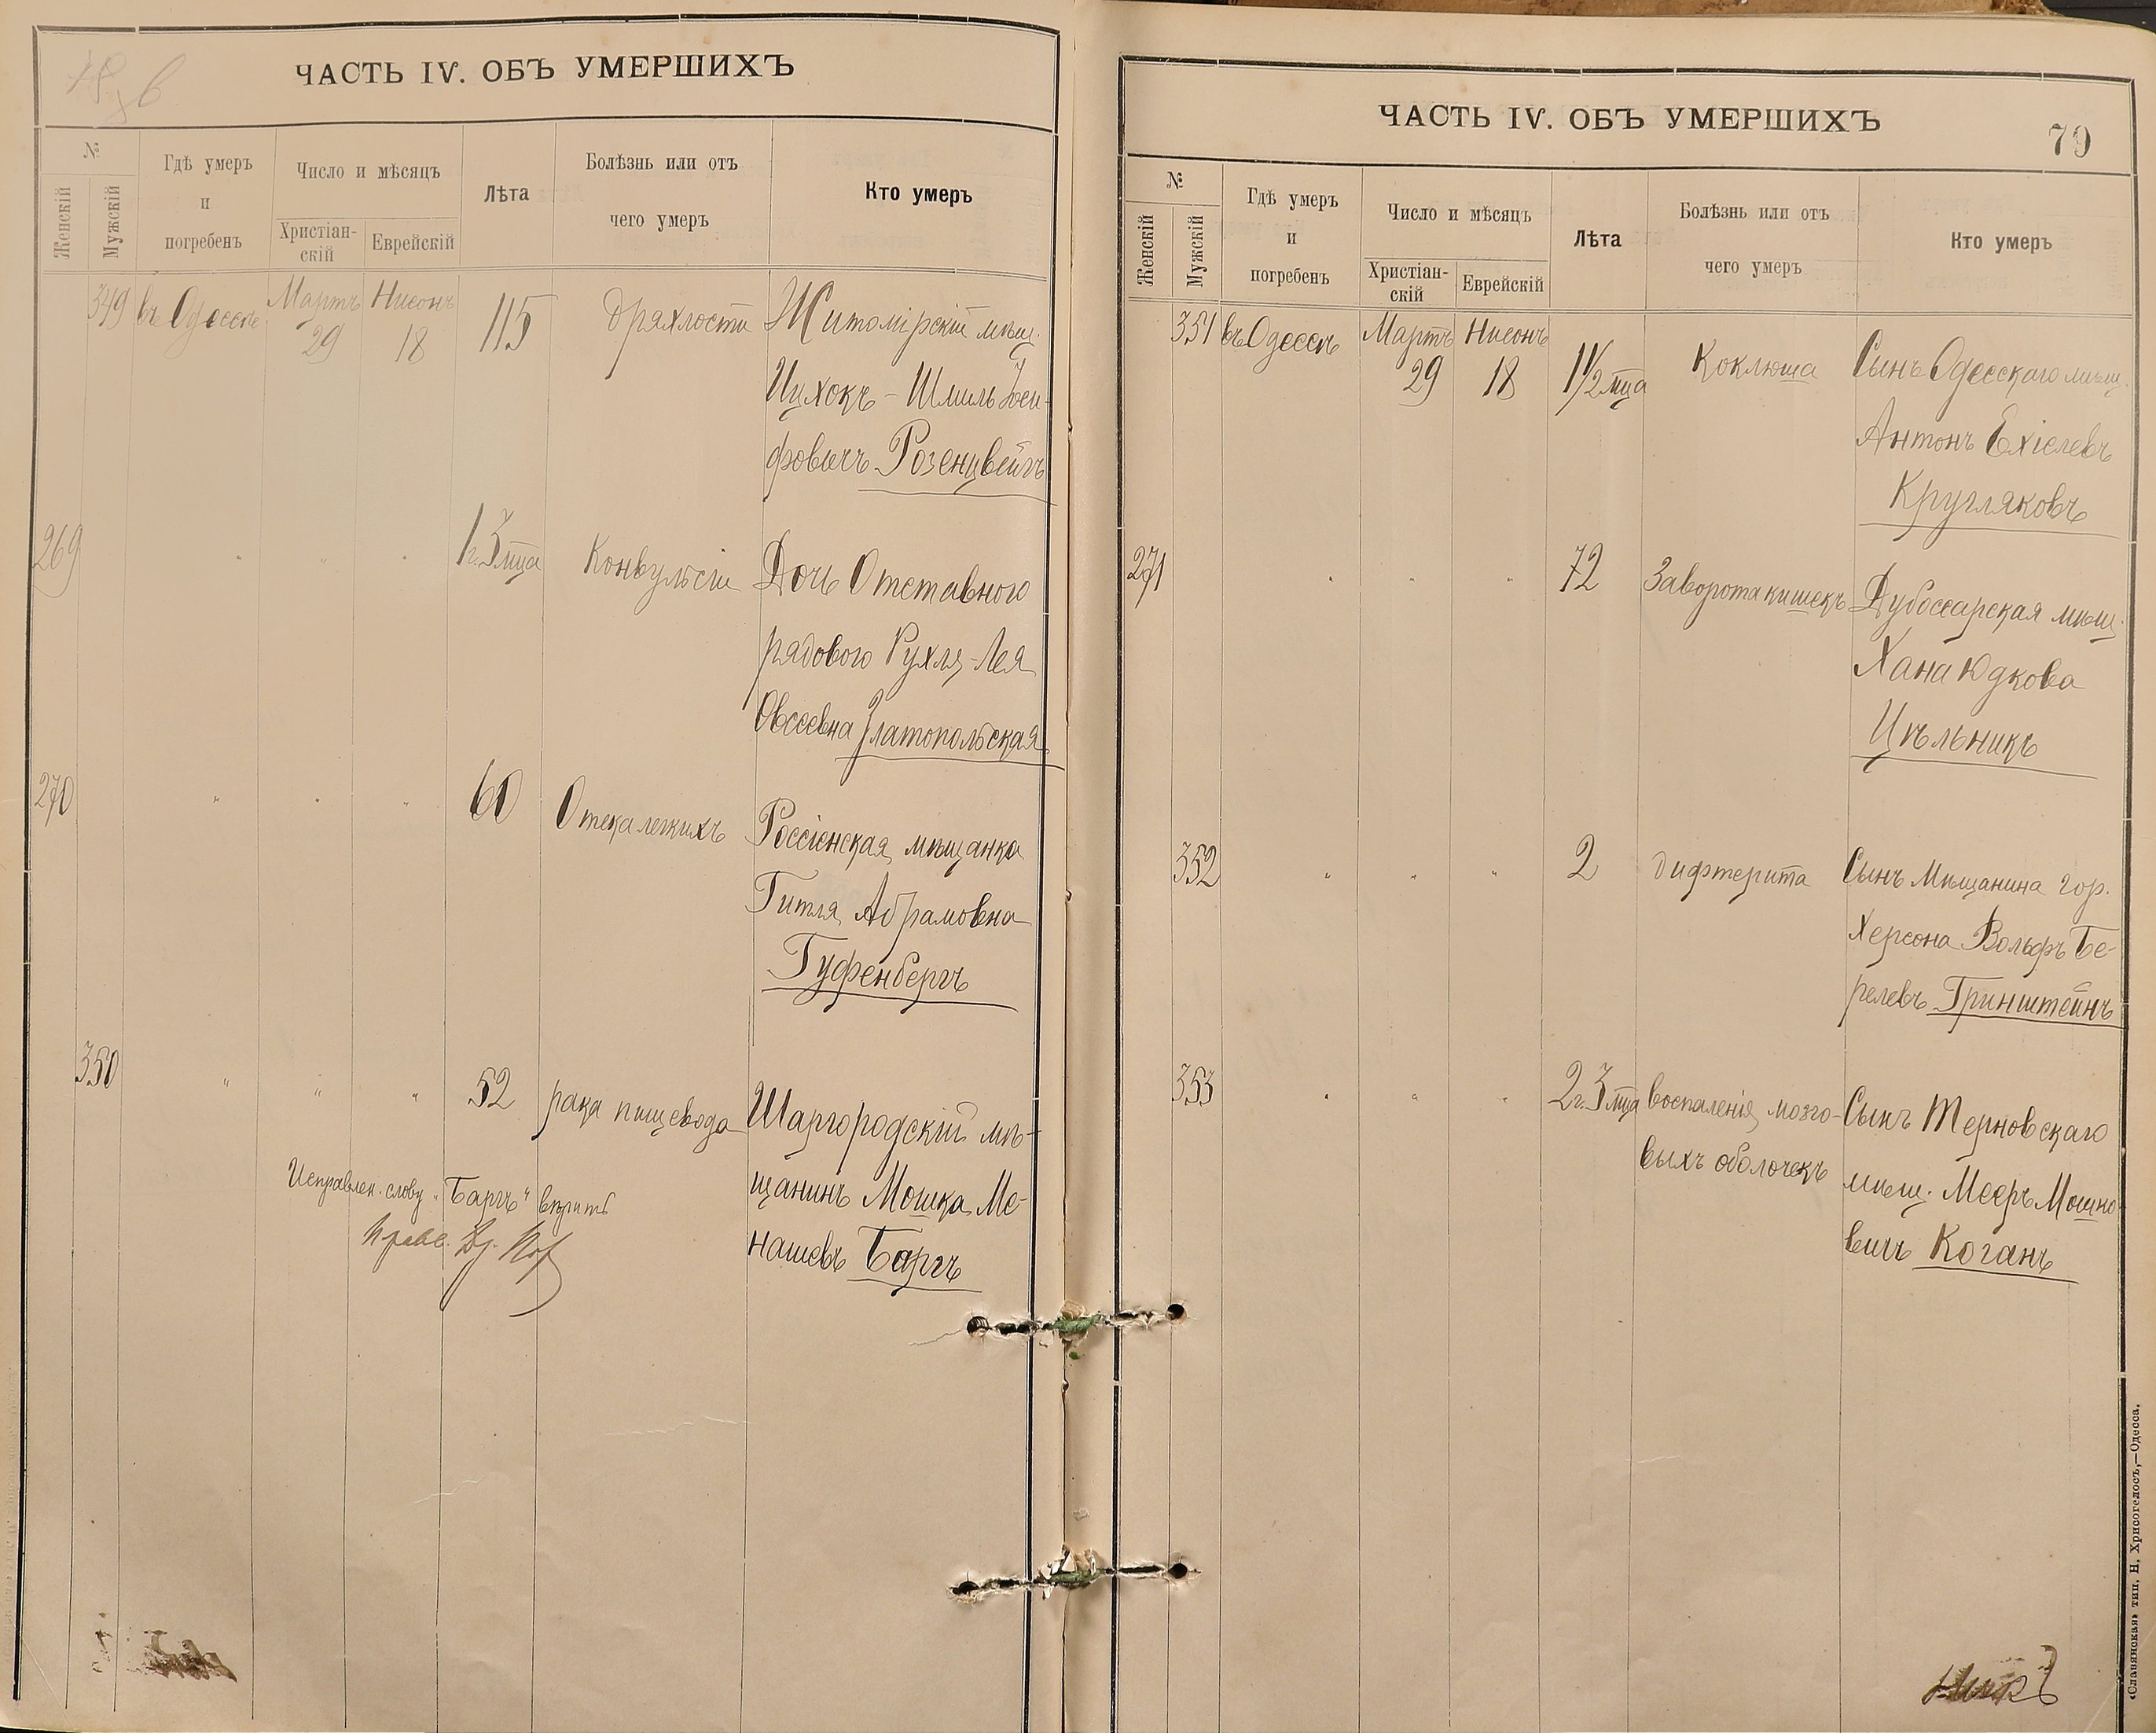 ЧАСТЬ IV. ОБЪ УМЕРШИХЪ
№
Женскій
Мужскій
Гдѣ умеръ
и
погребенъ
Число и мѣсяцъ
Христіан-
скій
Еврейскій
Лѣта
Болѣзнь или отъ
чего умеръ
Кто умеръ
349 въ Одессѣ Мартъ 29 Нисонъ 18 115 дряхлости Житомірскій мѣщ.
Ицхокъ-Шмиль Іоси-
фовичъ Розенцвейгъ
269 " " " 1 г. 3 мца Конвульсіи Дочь Отставного
рядового Рухля-Лея
Овсеевна Златопольская
270 " " " 60 Отека легкихъ Россіенская мѣщанка
Гитля Абрамовна
Гуфенбергъ
350 " " " 52 рака пищевода Шаргородскій мѣ-
щанинъ Мошка Ме-
нашевъ Баргъ
Исправлен. слову "Баргъ" вѣрить
ЧАСТЬ IV. ОБЪ УМЕРШИХЪ
79
№
Женскій
Мужскій
Гдѣ умеръ
и
погребенъ
Число и мѣсяцъ
Христіан-
скій
Еврейскій
Лѣта
Болѣзнь или отъ
чего умеръ
Кто умеръ
351 въ Одессѣ Мартъ 29 Нисонъ 18 1 1/2 мца Коклюша Сынъ Одесскаго мѣщ.
Антонъ Ехіелевъ
Кругляковъ
271 " " " 72 Заворота кишекъ Дубоссарская мѣщ.
Хана Юдкова
Цѣльникъ
352 " " " 2 дифтерита Сынъ Мѣщанина гор.
Херсона Вольфъ Бе-
релевъ Гринштейнъ
353 " " " 2 г. 3 мца воспаленія мозго- Сынъ Терновскаго
выхъ оболочекъ мѣщ. Мееръ Мошко-
вичъ Коганъ
«Славянская» тип. Н. Хрисогелосъ,—Одесса.